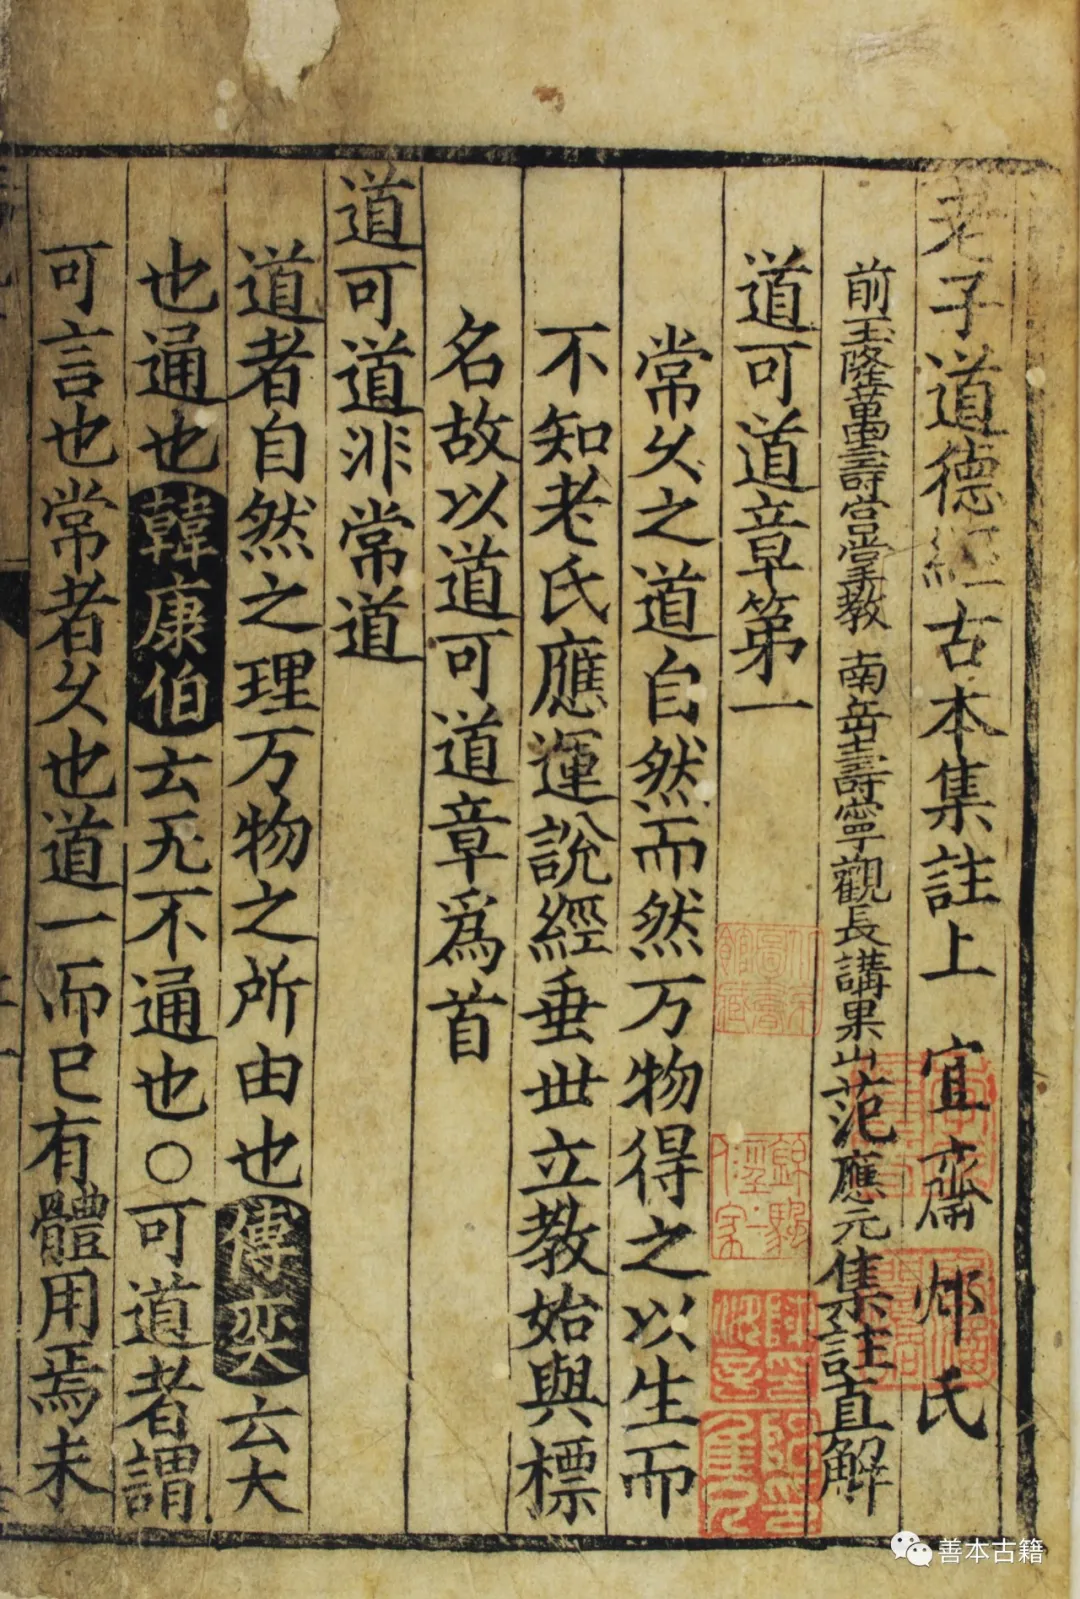 老子道德經古本集註上　宜齋　邚氏
前玉隆萬壽宮掌教　南岳壽寧觀長講果山范應元集註直解
道可道章第一
常久之道自然而然万物得之以生而
不知老氏應運說經垂世立教始與標
名故以道可道章爲首
道可道非常道
道者自然之理万物之所由也傅奕云大
也通也韓康伯云无不通也○可道者謂
可言也常者久也道一而已有體用焉未
善本古籍